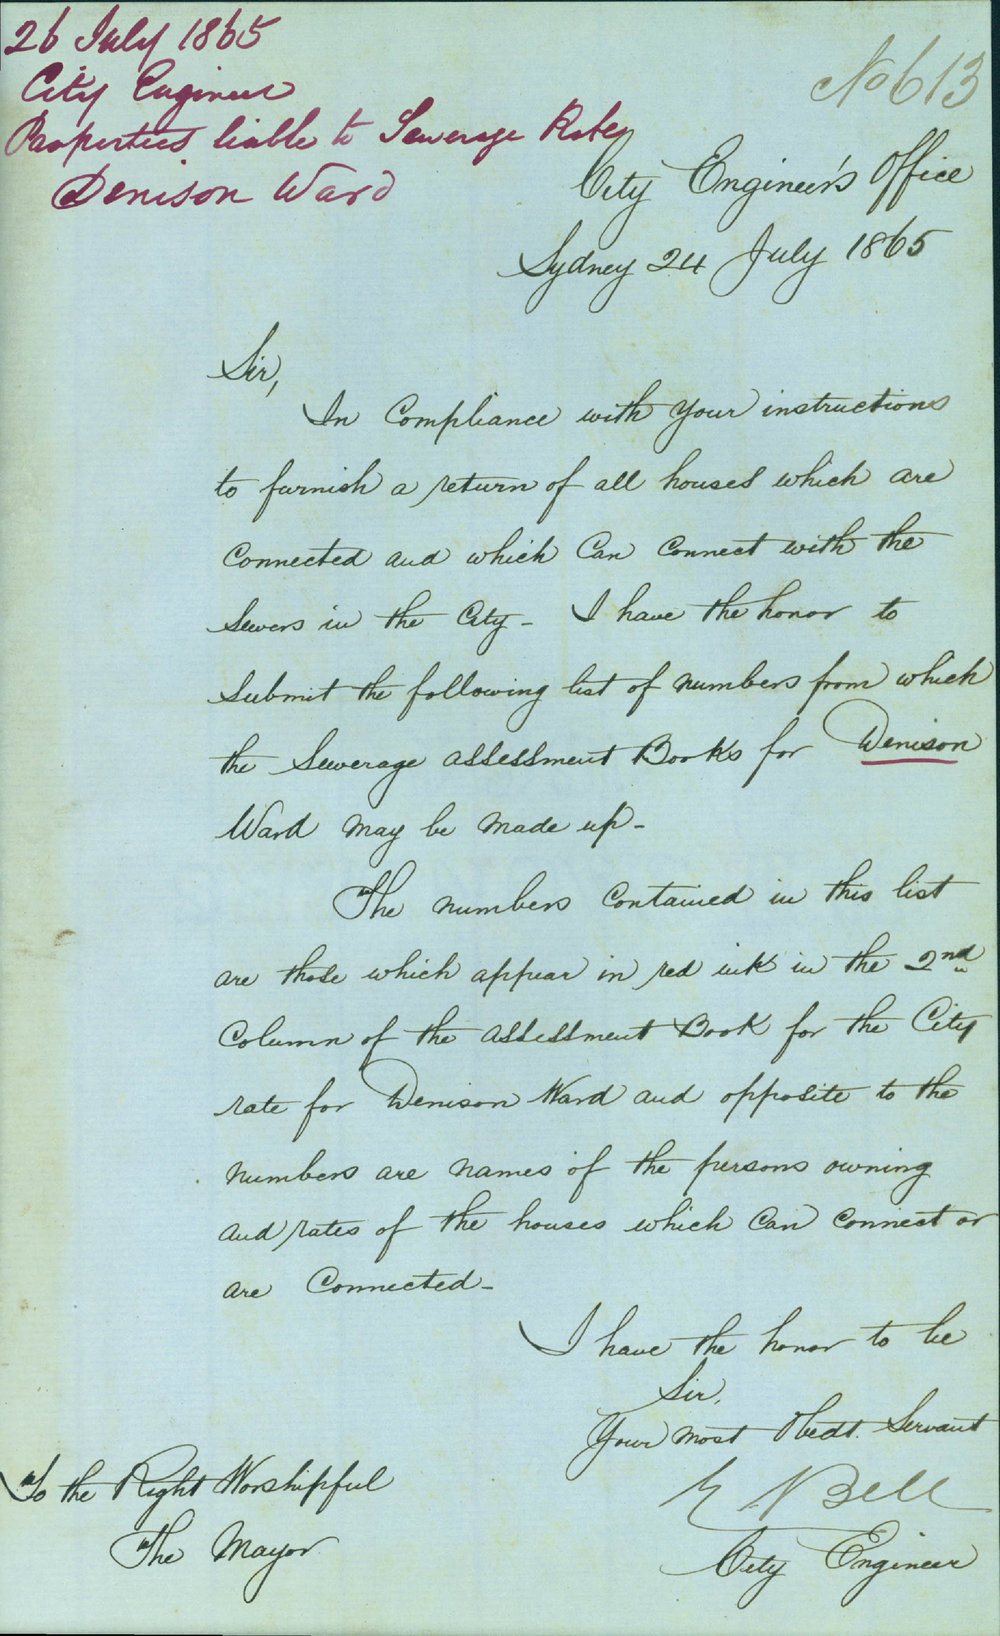 26 July 1865
City Engineer
Properties liable to Sewerage Rates
Denison Ward
No 613
City Engineer's Office
Sydney 24 July 1865
Sir,
In Compliance with your instructions
to furnish a return of all houses which are
Connected and which Can Connect with the
Sewers in the City - I have the honor to
Submit the following list of numbers from which
the Sewerage assessment Books for Denison
Ward may be made up -
The numbers Contained in this list
are those which appear in red ink in the 2nd
Column of the assessment Book for the City
rate for Denison Ward and opposite to the
numbers are names of the persons owning
and rates of the houses which Can Connect or
are Connected -
I have the honor to be
Sir,
Your most Obedt. Servant
E Bell
City Engineer
To the Right Worshipful
The Mayor